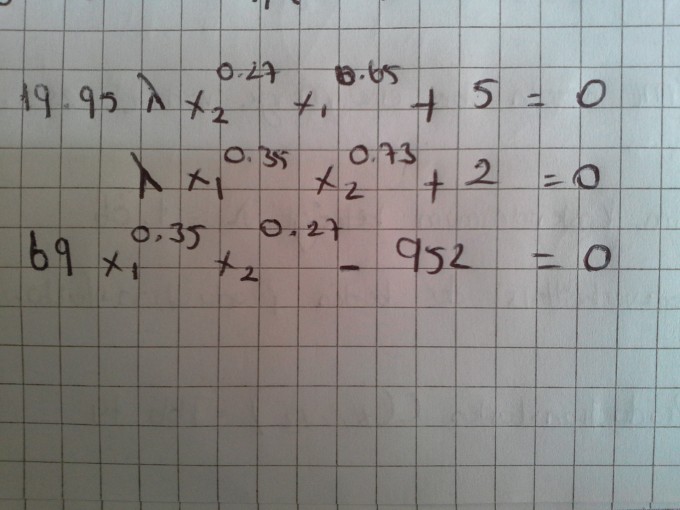 19.95 λ x₂^0.27 x₁^0.65 + 5 = 0
λ x₁^0.35 x₂^0.73 + 2 = 0
69 x₁^0.35 x₂^0.27 - 952 = 0